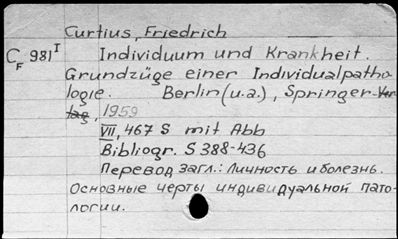 Curtius, Friedrich
C_F 981^I Individuum und Krankheit.
Grundzüge einer Individualpatho-
logie. Berlin (u.a.), Springer-Ver-
lag, 1959
VII, 467 S mit Abb
Bibliogr. S 388-436
Перевод загл.: Личность и болезнь.
Основные черты индивидуальной пато-
логии.